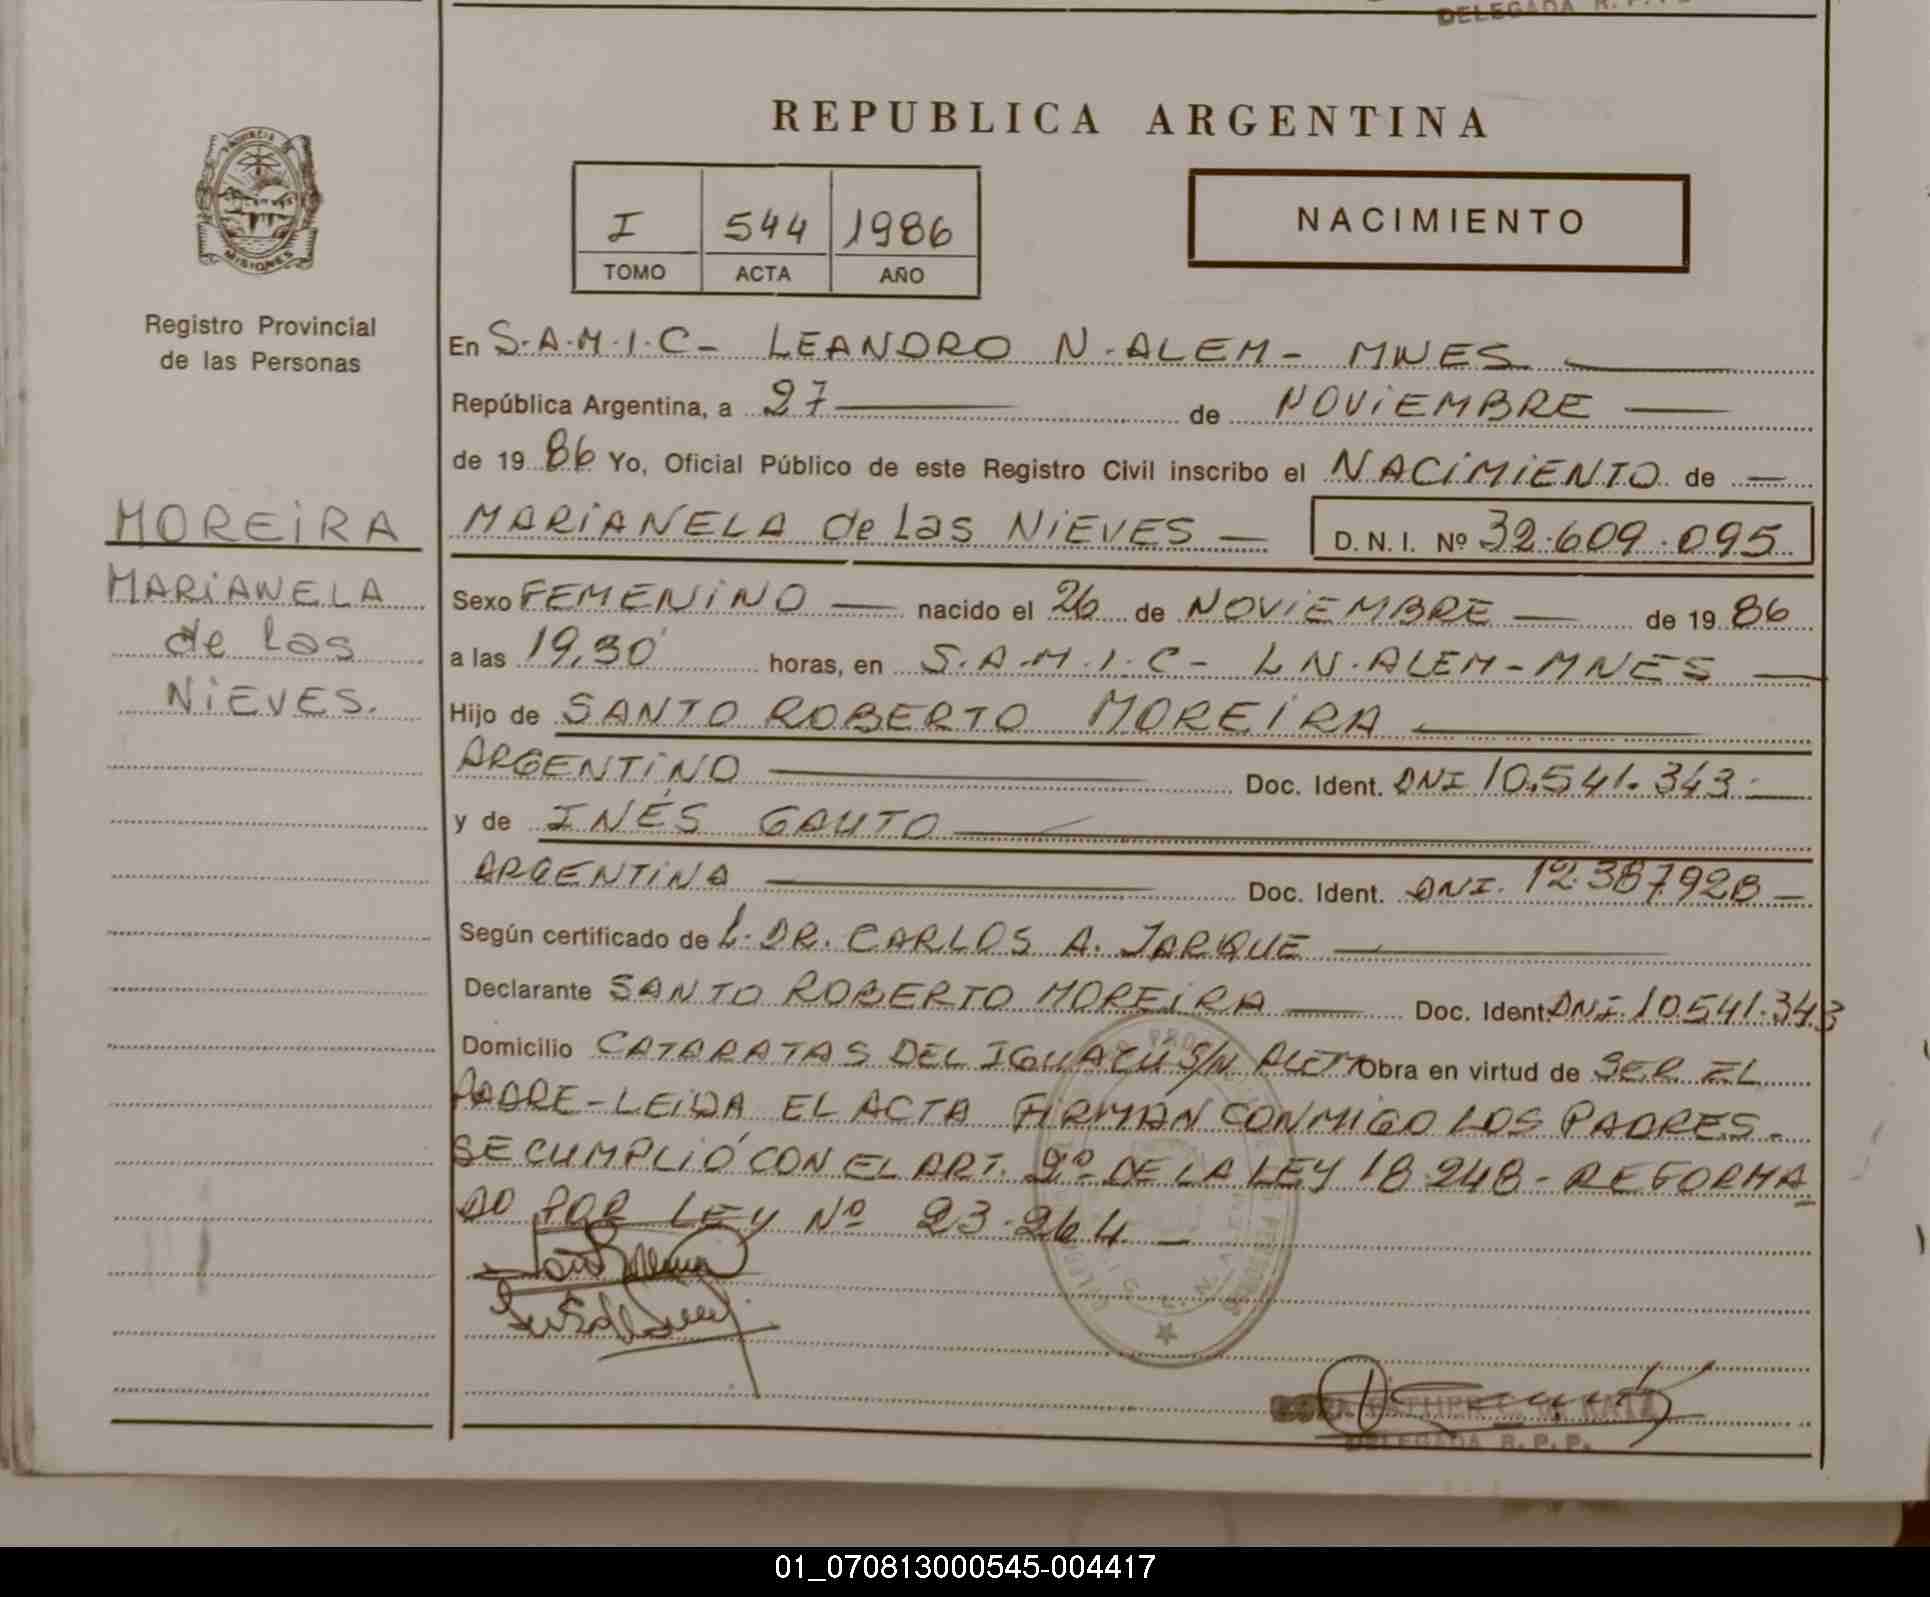 DELEGADA R. P. P.
REPUBLICA ARGENTINA
PROVINCIA
MISIONES
Registro Provincial
de las Personas
I 544 1986
TOMO ACTA AÑO
NACIMIENTO
En S.A.M.I.C- LEANDRO N.ALEM- MNES
República Argentina, a 27 de NOVIEMBRE
de 19 86 Yo, Oficial Público de este Registro Civil inscribo el NACIMIENTO de
MOREIRA
MARIANELA
de las
NIEVES.
MARIANELA de las NIEVES D. N. I. Nº 32.609.095
Sexo FEMENINO nacido el 26 de NOVIEMBRE de 19 86
a las 19,30 horas, en S.A.M.I.C- L N.ALEM-MNES
Hijo de SANTO ROBERTO MOREIRA
ARGENTINO Doc. Ident. DNI 10.541.343-
y de INÉS GAUTO
ARGENTINA Doc. Ident. DNI. 12.387928-
Según certificado de L. DR. CARLOS A. JARQUE
Declarante SANTO ROBERTO MOREIRA Doc. Ident. DNI 10541.343
Domicilio CATARATAS DEL IGUAZU S/N ALEM Obra en virtud de SER EL
PADRE-LEIDA EL ACTA FIRMAN CONMIGO LOS PADRES-
SE CUMPLIÓ CON EL ART. 2º DE LA LEY 18.248-REFORMA
DO POR LEY Nº 23.264-
DELEGADA R. P. P.
01_070813000545-004417